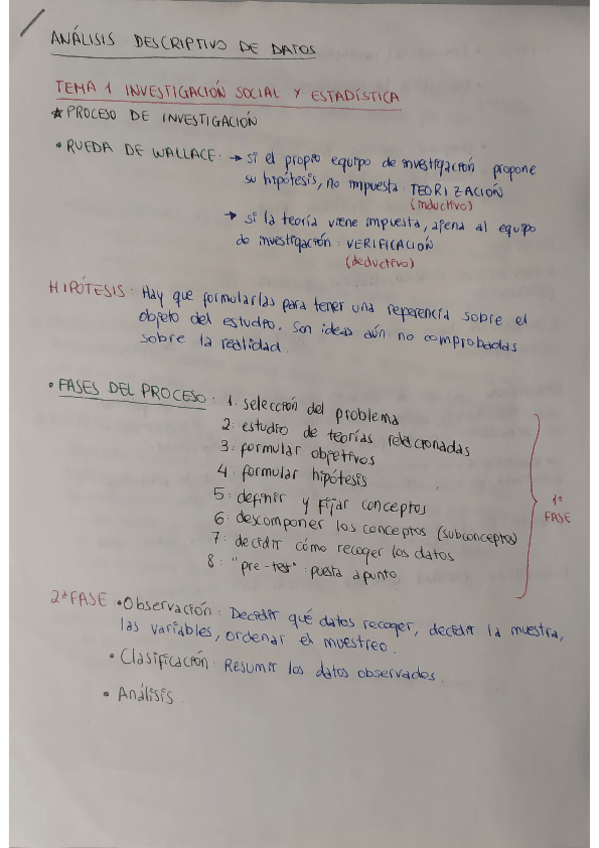 ANÁLISIS DESCRIPTIVO DE DATOS
TEMA 1 INVESTIGACIÓN SOCIAL Y ESTADÍSTICA
* PROCESO DE INVESTIGACIÓN
• RUEDA DE WALLACE: → si el propio equipo de investigación propone
su hipótesis, no impuesta: TEORIZACIÓN
(inductivo)
→ si la teoría viene impuesta, ajena al equipo
de investigación: VERIFICACIÓN
(deductivo)
HIPÓTESIS: Hay que formularlas para tener una referencia sobre el
objeto del estudio. Son ideas aún no comprobadas
sobre la realidad.
• FASES DEL PROCESO: 1. selección del problema
2. estudio de teorías relacionadas
3. formular objetivos
4. formular hipótesis
5. definir y fijar conceptos
6. descomponer los conceptos (subconceptos)
7. decidir cómo recoger los datos
8. "pre-test": puesta a punto
1ª
FASE
2ª FASE • Observación: Decidir qué datos recoger, decidir la muestra,
las variables, ordenar el muestreo.
• Clasificación: Resumir los datos observados.
• Análisis.